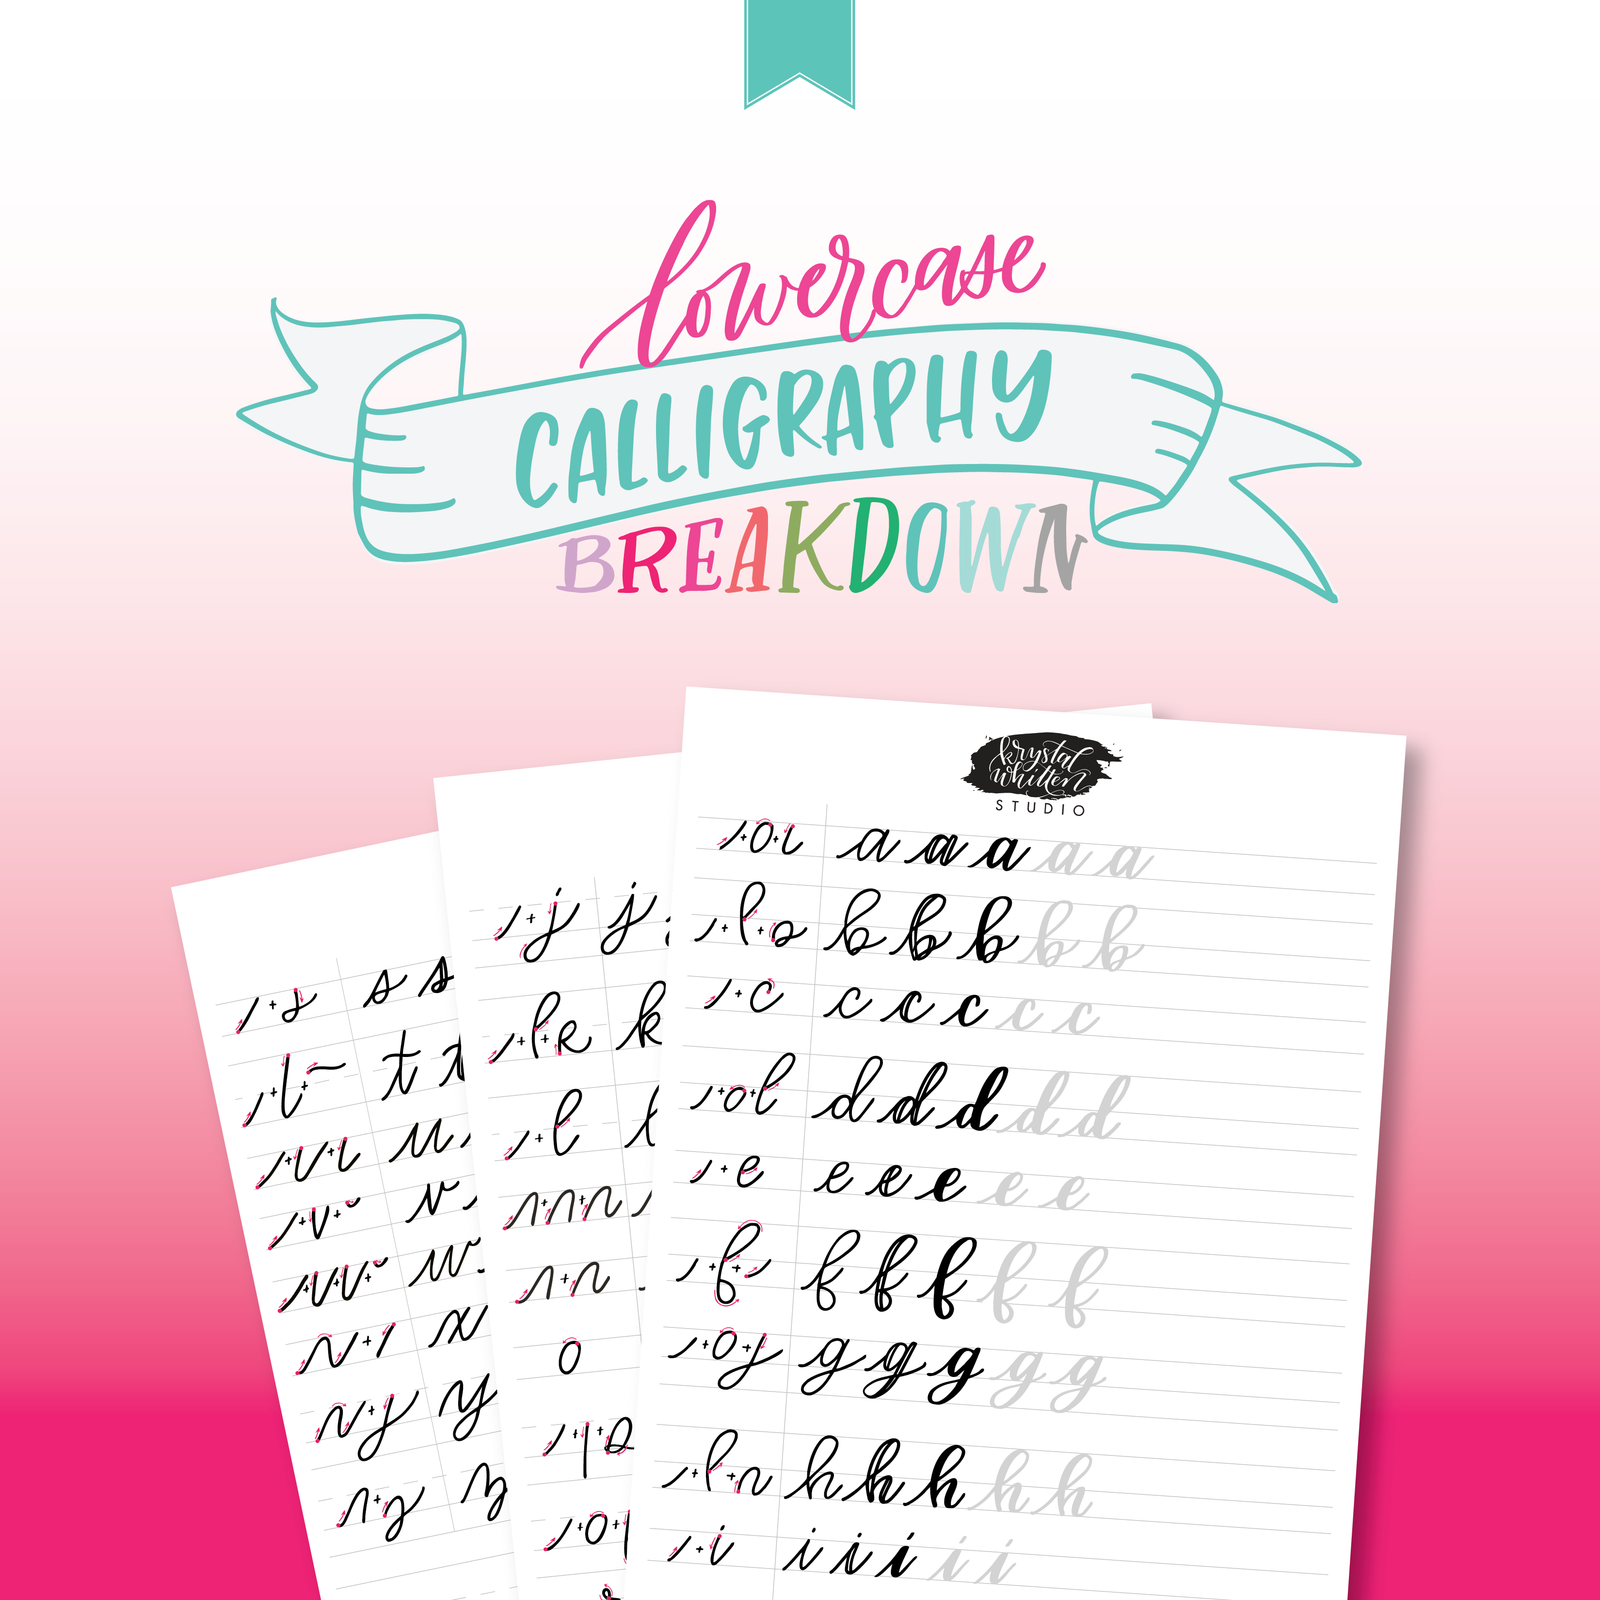 lowercase
CALLIGRAPHY
BREAKDOWN
krystal
whitten
STUDIO
a a a a a
b b b b b
c + c c c c c
d d d d d
+ e e e e e e
f f f f f
g g g g g
h h h h h
+ i i i i i i
+ j j
k
+ l
o
+ s s s
t t
u
v
w
x
y
z